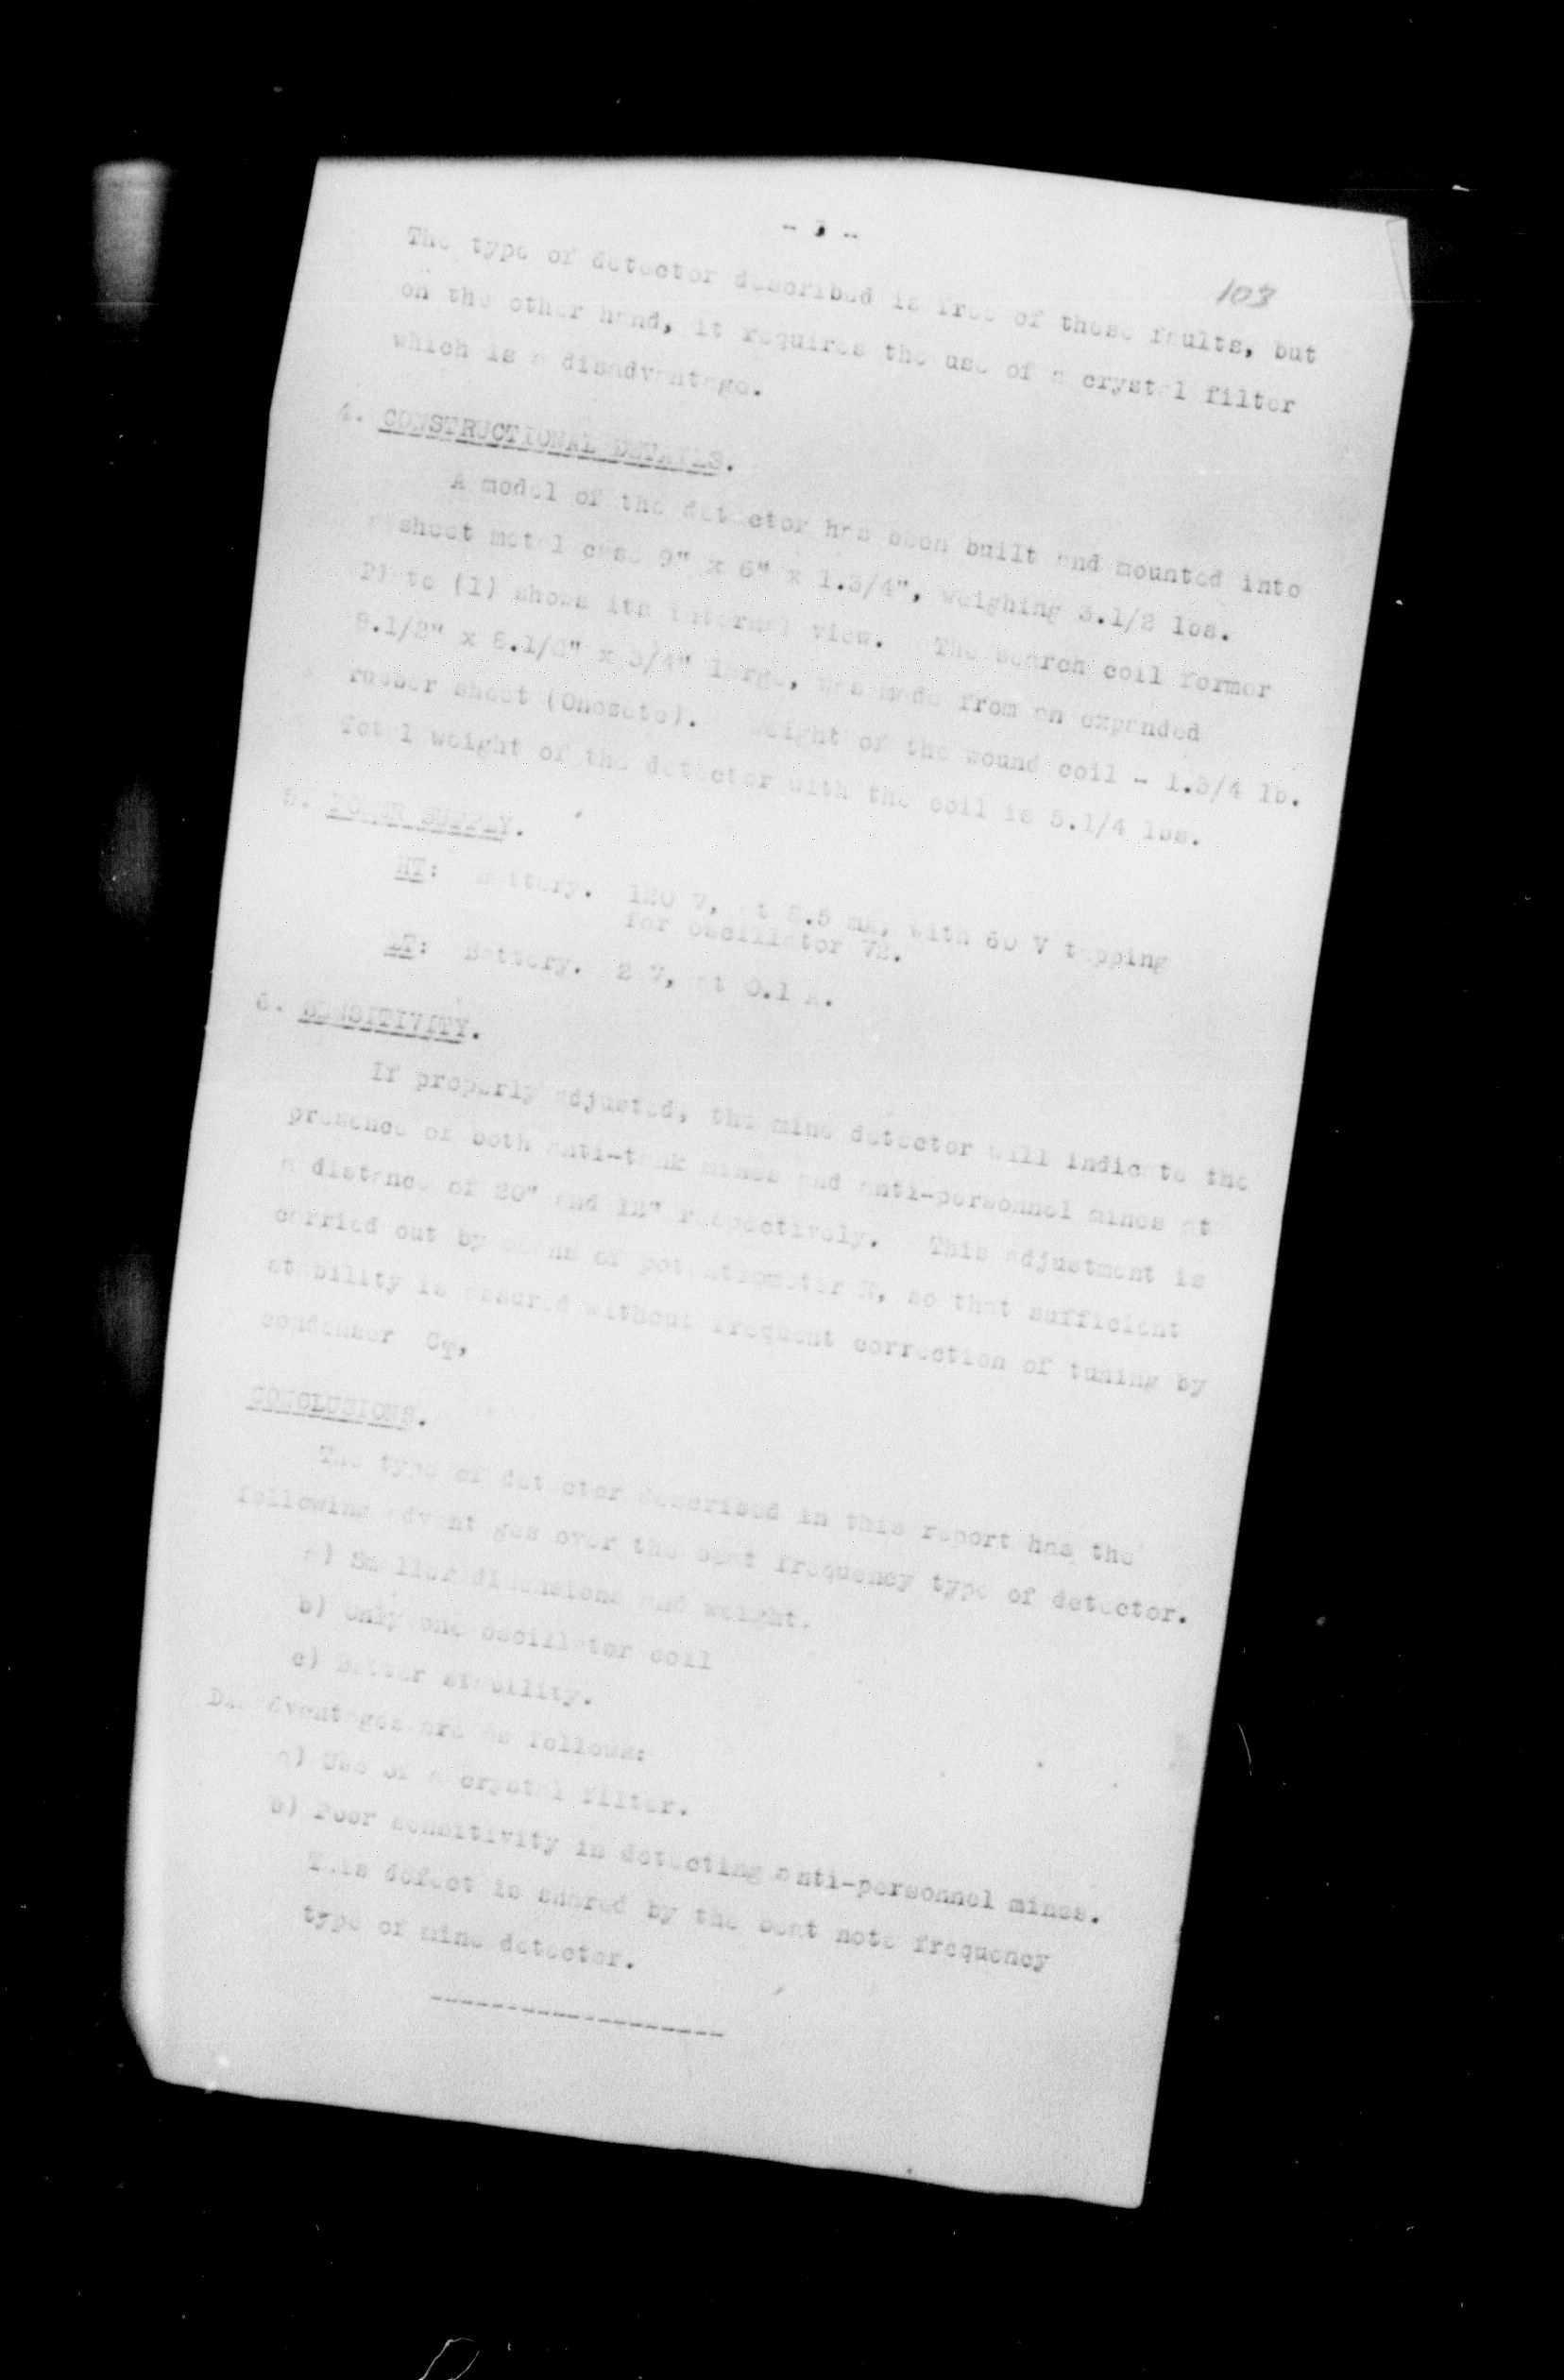 - 3 -
103
The type of detector described is free of these faults, but
on the other hand, it requires the use of a crystal filter
which is a disadvantage.
4. CONSTRUCTIONAL DETAILS.
A model of the detector has been built and mounted into
a sheet metal case 9" x 6" x 1.3/4", weighing 3.1/2 lbs.
Plate (1) shows its internal view. The search coil former
8.1/2" x 8.1/2" x 3/4" large, was made from an expanded
rubber sheet (Onozote). Weight of the wound coil - 1.3/4 lb.
Total weight of the detector with the coil is 5.1/4 lbs.
5. POWER SUPPLY.
HT: Battery. 120 V, at 8.5 mA, with 60 V tapping
for oscillator V2.
LT: Battery. 2 V, at 0.1 A.
6. SENSITIVITY.
If properly adjusted, the mine detector will indicate the
presence of both anti-tank mines and anti-personnel mines at
a distance of 20" and 12" respectively. This adjustment is
carried out by means of potentiometer R, so that sufficient
stability is assured without frequent correction of tuning by
condenser CT,
CONCLUSIONS.
The type of detector described in this report has the
following advantages over the beat frequency type of detector.
a) Smaller dimensions and weight.
b) Only one oscillator coil
c) Better stability.
Disadvantages are as follows:
a) Use of a crystal filter.
b) Poor sensitivity in detecting anti-personnel mines.
This defect is shared by the beat note frequency
type of mine detector.
-------------------